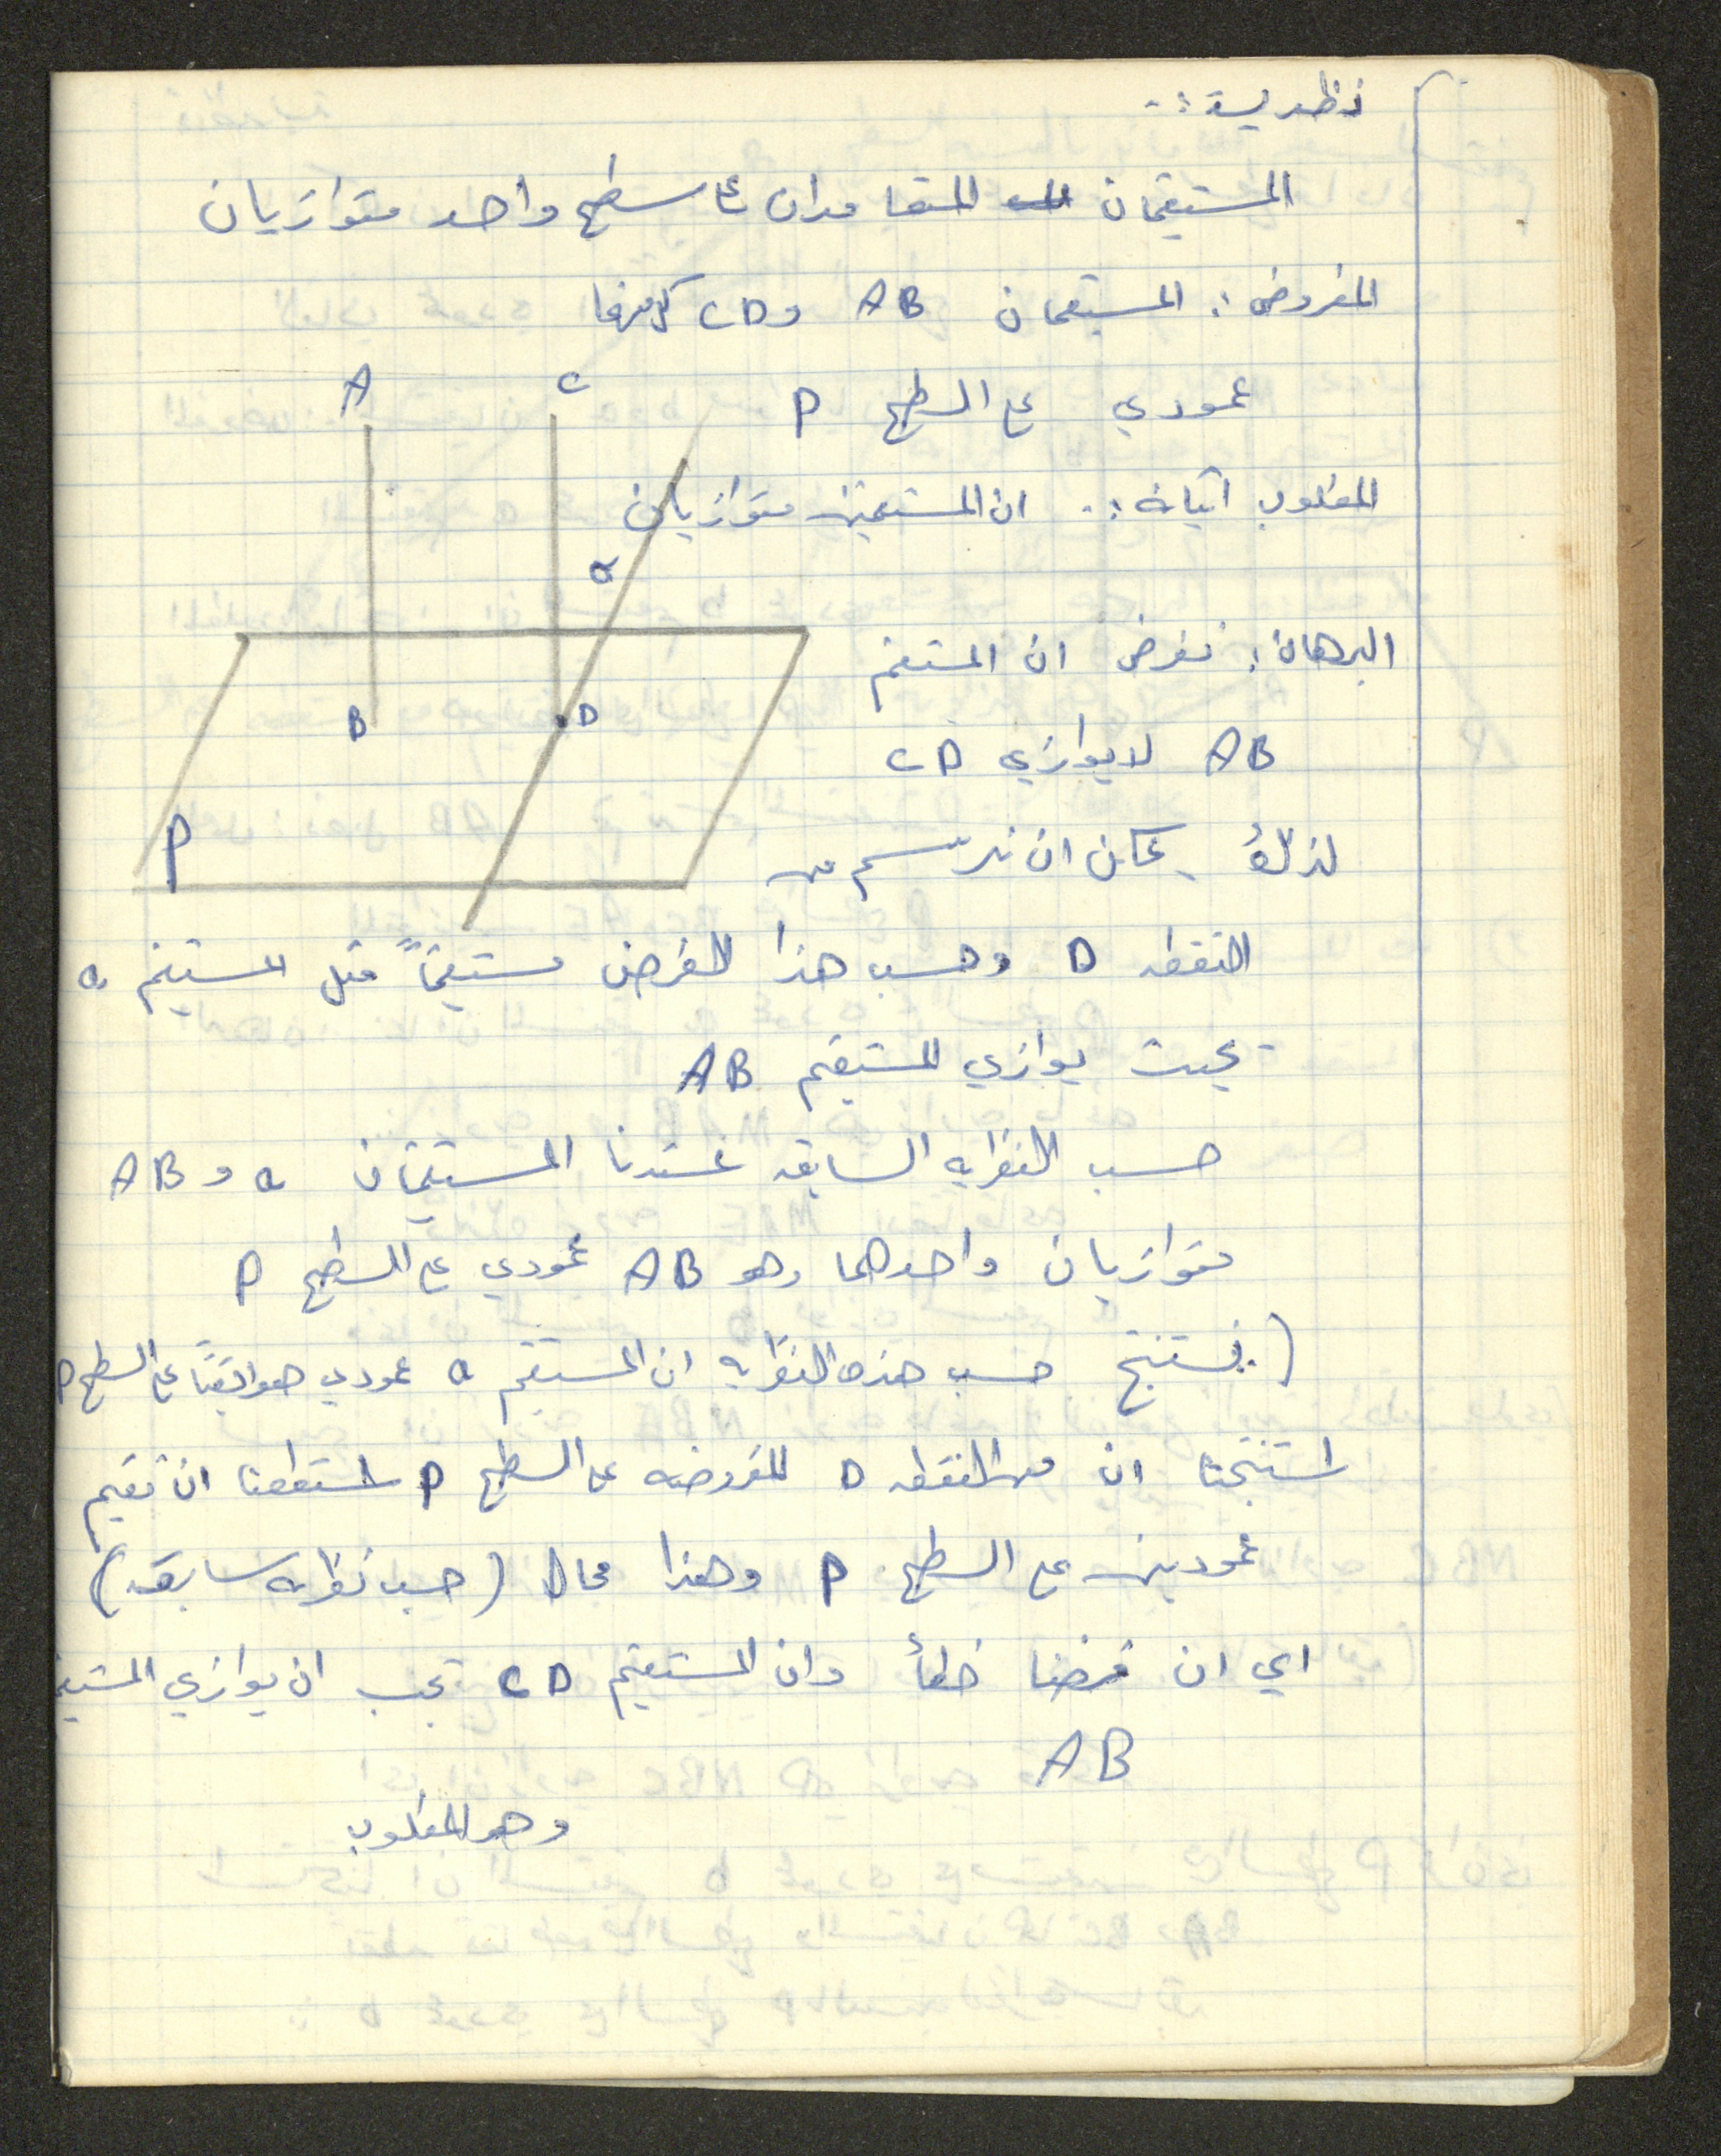 نظرية :.
المستقيمان المتعامدان على سطح واحد متوازيان
المفروض : المستقيمان AB و CD كل منهما
عمودي على السطح P
A C
المطلوب اثباته :. ان المستقيمين متوازيان
a
البرهان : نفرض ان المستقيم
B D
AB لا يوازي CD
P
لذلك يمكن ان نرسم من
النقطه D وحسب هذا الفرض مستقيماً مثل المستقيم a
بحيث يوازي المستقيم AB
حسب النظريه السابقه عندنا المستقيمان a و AB
متوازيان واحدهما وهو AB عمودي على السطح P
( نستنتج حسب هذه النظريه ان المستقيم a عمودي هو ايضاً على السطح P
استنتجنا ان من النقطه D المفروضه على السطح P استطعنا ان نقيم
عمودين على السطح P وهذا محال (حسب نظريه سابقه)
اي ان فرضنا خطأ وان المستقيم CD يجب ان يوازي المستقيم
AB
وهو المطلوب